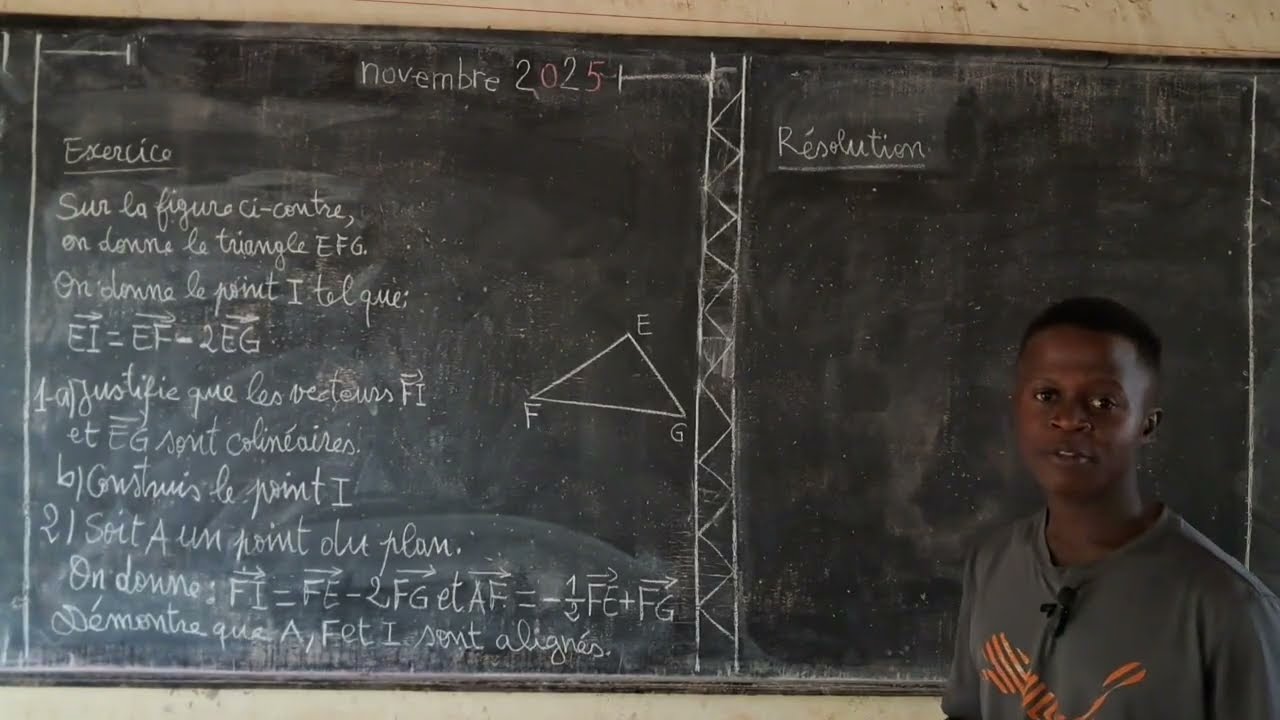 novembre 2025
Exercice
Sur la figure ci-contre,
on donne le triangle EFG.
On donne le point I tel que:
$\overrightarrow{EI} = \overrightarrow{EF} - 2\overrightarrow{EG}$
1-a) Justifie que les vecteurs $\overrightarrow{FI}$
et $\overrightarrow{EG}$ sont colinéaires.
b) Construis le point I
2) Soit A un point du plan.
On donne: $\overrightarrow{FI} = \overrightarrow{FE} - 2\overrightarrow{FG}$ et $\overrightarrow{AF} = -\frac{1}{2}\overrightarrow{FE} + \overrightarrow{FG}$
Démontre que A, F et I sont alignés.
E
F
G
Résolution